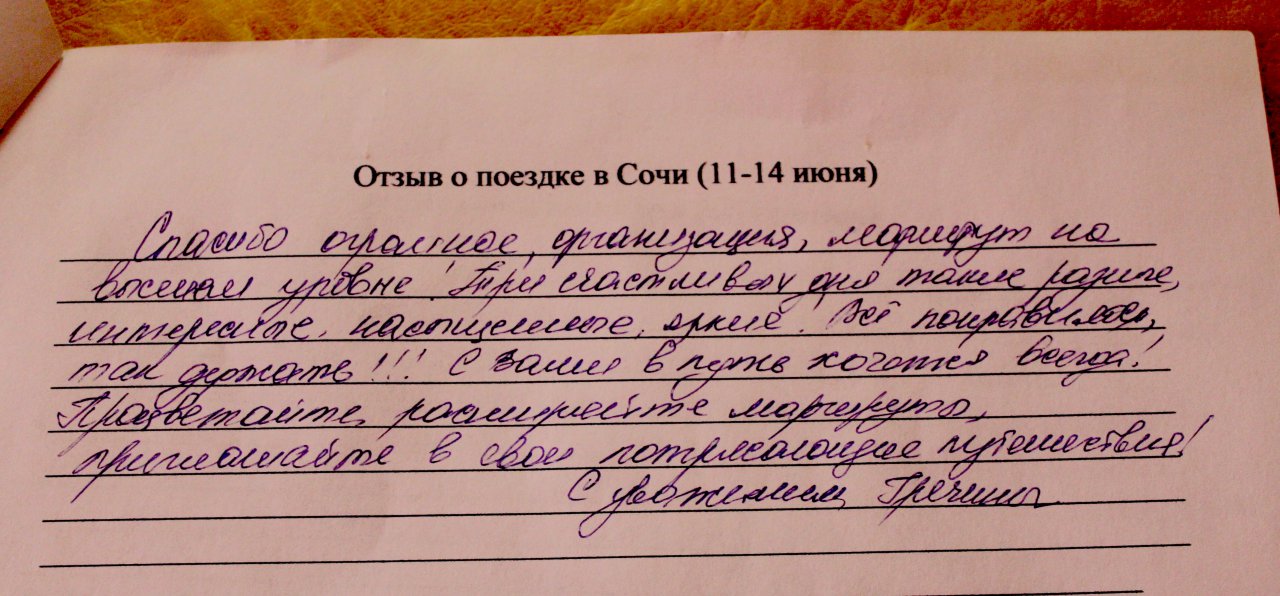 Отзыв о поездке в Сочи (11-14 июня)
Спасибо огромное, организация, маршрут на
высшем уровне! Три счастливых дня такие разные,
интересные, насыщенные, яркие! Всё понравилось,
так держать!!! С Вами в путь хочется всегда!
Процветайте, расширяйте маршруты,
приглашайте в свои потрясающие путешествия!
С уважением, Гречины.